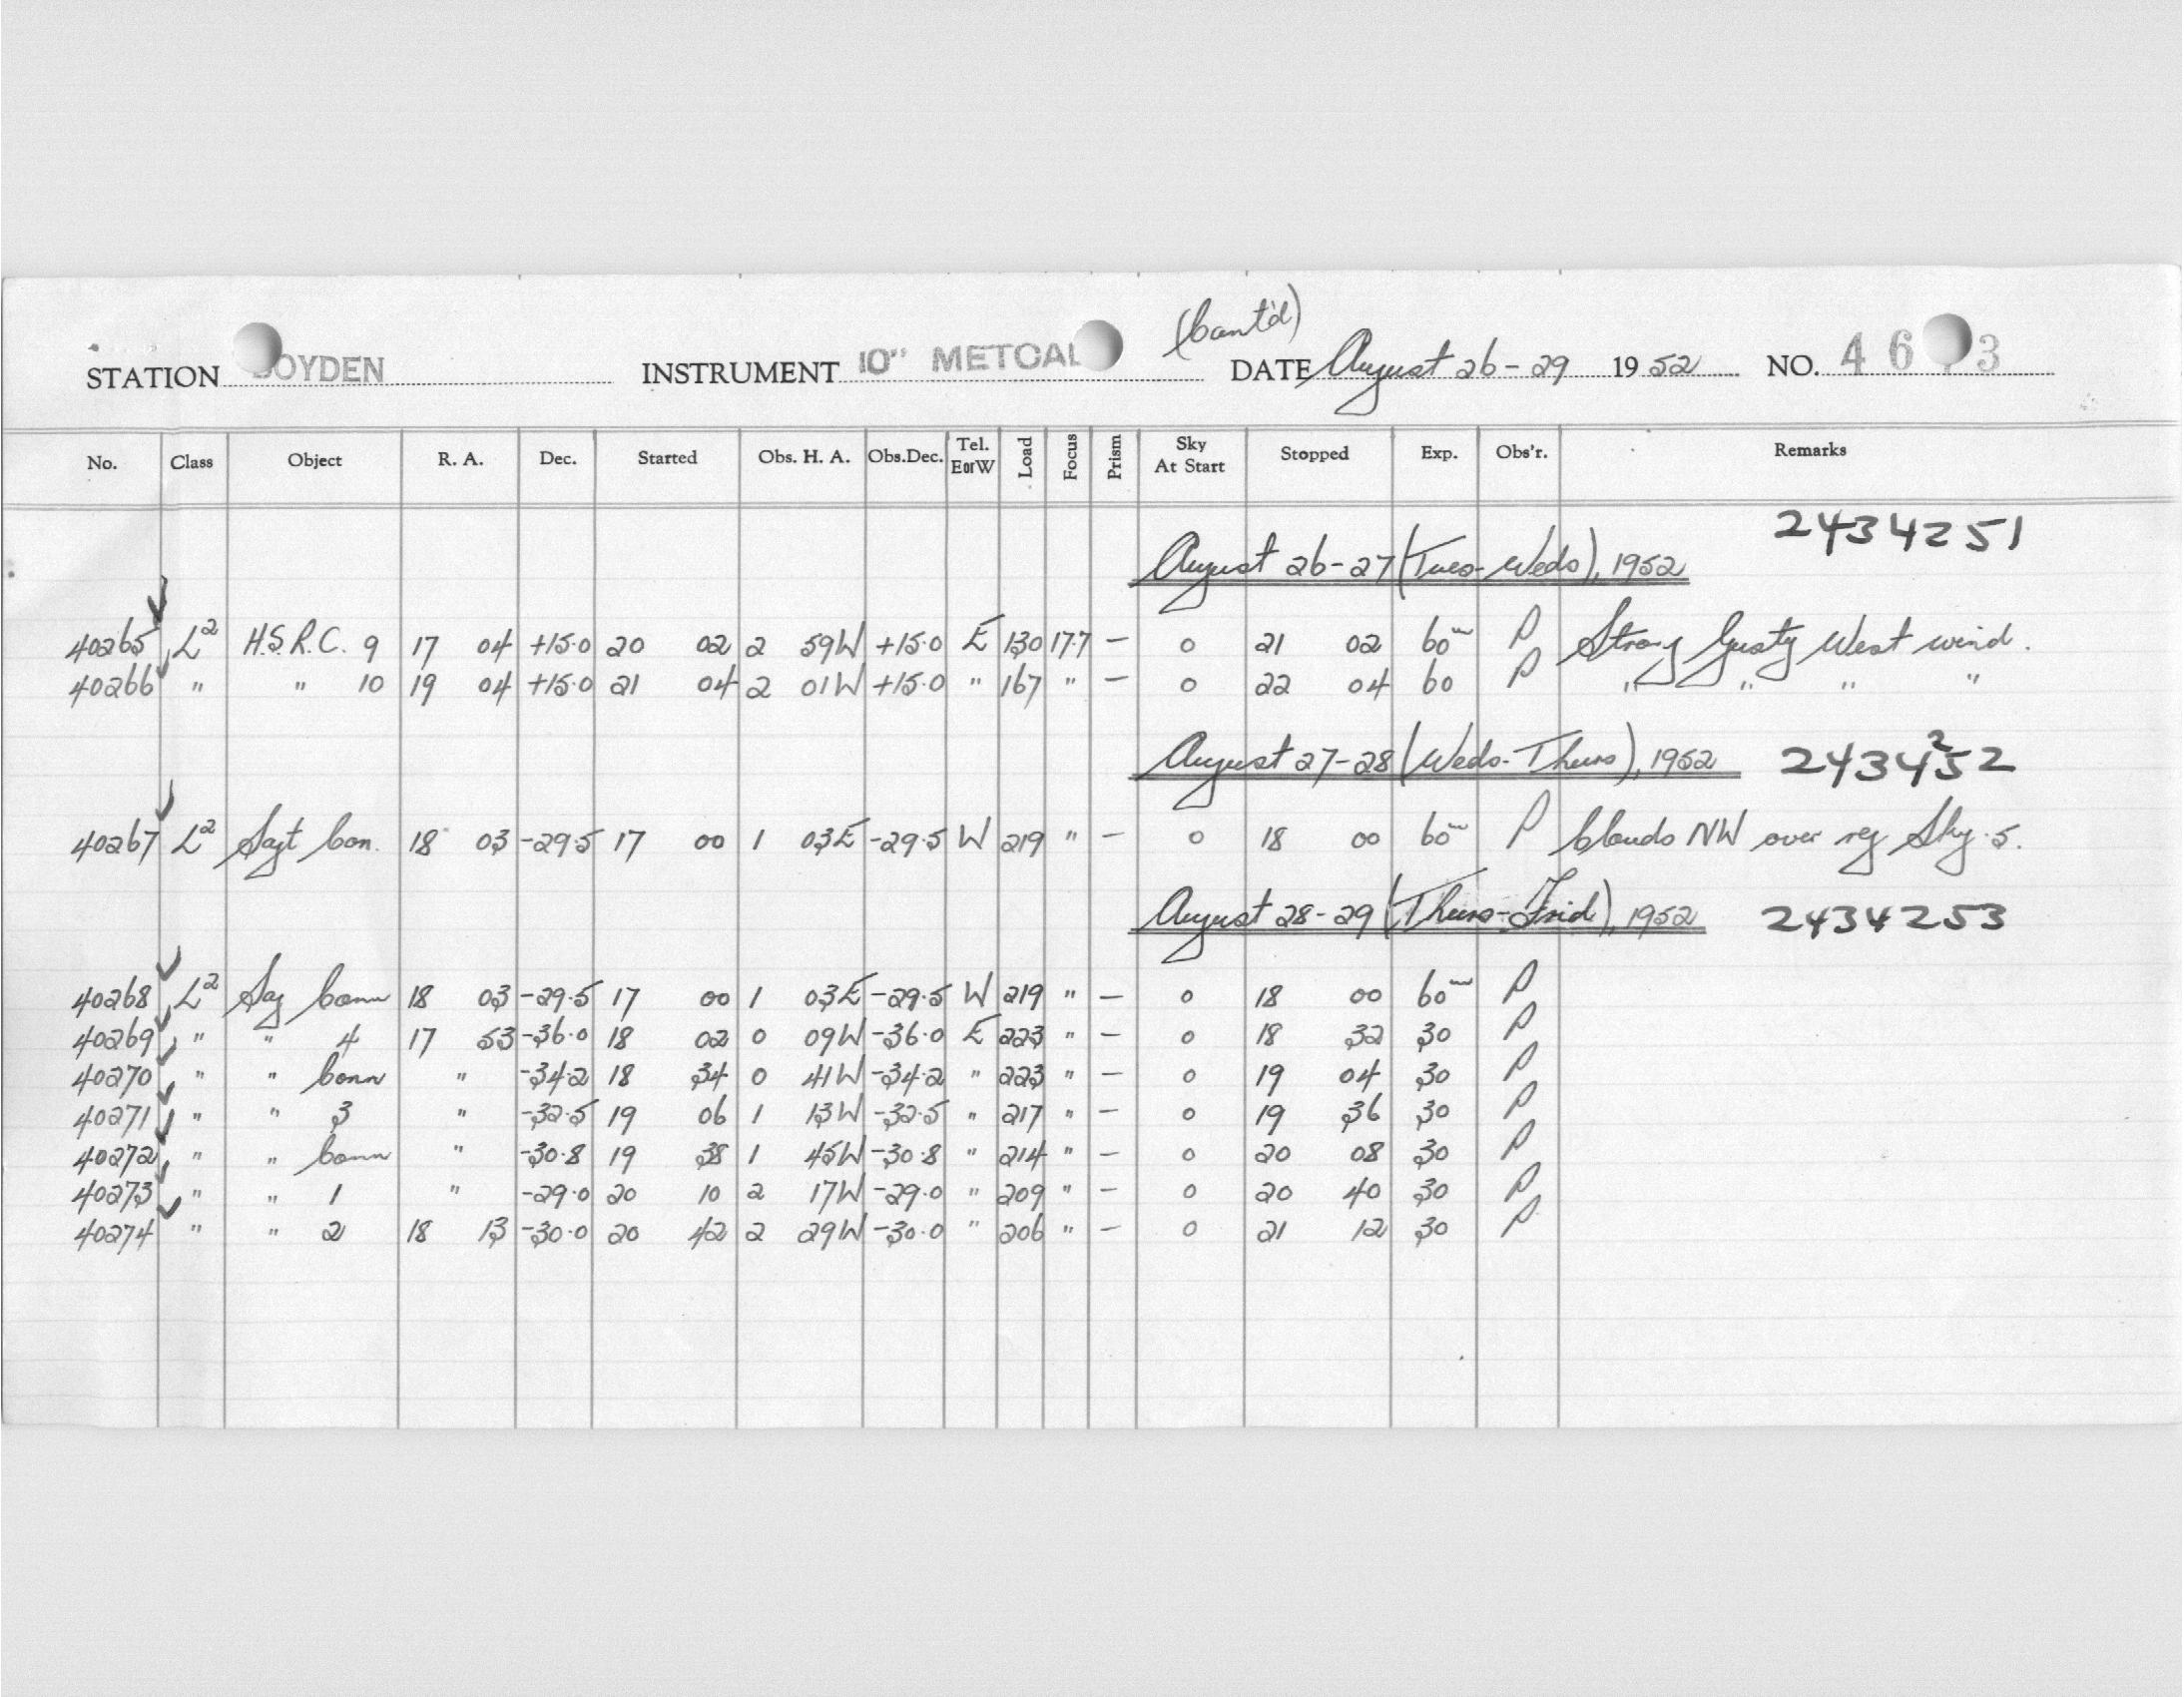 (Cont'd)
STATION OYDEN INSTRUMENT 10" METCAL DATE August 26-29 1952 NO. 46 3
No. Class Object R. A. Dec. Started Obs. H. A. Obs.Dec. Tel. E or W Load Focus Prism Sky At Start Stopped Exp. Obs'r. Remarks
2434251
August 26-27 (Tues-Weds), 1952
40265 L2 H.S.R.C. 9 17 04 +15.0 20 02 2 59W +15.0 E 130 17.7 — 0 21 02 60m P Strong Gusty West wind.
40266 " " 10 19 04 +15.0 21 04 2 01W +15.0 " 167 " — 0 22 04 60 P " " " "
August 27-28 (Weds-Thurs), 1952 2434252
40267 L2 Sagt Con. 18 03 -29.5 17 00 1 03E -29.5 W 219 " — 0 18 00 60m P Clouds NW over reg Sky .5.
August 28-29 (Thurs-Frid), 1952 2434253
40268 L2 Sag Conn 18 03 -29.5 17 00 1 03E -29.5 W 219 " — 0 18 00 60m P
40269 " " 4 17 53 -36.0 18 02 0 09W -36.0 E 223 " — 0 18 32 30 P
40270 " " Conn " -34.2 18 34 0 41W -34.2 " 223 " — 0 19 04 30 P
40271 " " 3 " -32.5 19 06 1 13W -32.5 " 217 " — 0 19 36 30 P
40272 " " Conn " -30.8 19 38 1 45W -30.8 " 214 " — 0 20 08 30 P
40273 " " 1 " -29.0 20 10 2 17W -29.0 " 209 " — 0 20 40 30 P
40274 " " 2 18 13 -30.0 20 42 2 29W -30.0 " 206 " — 0 21 12 30 P